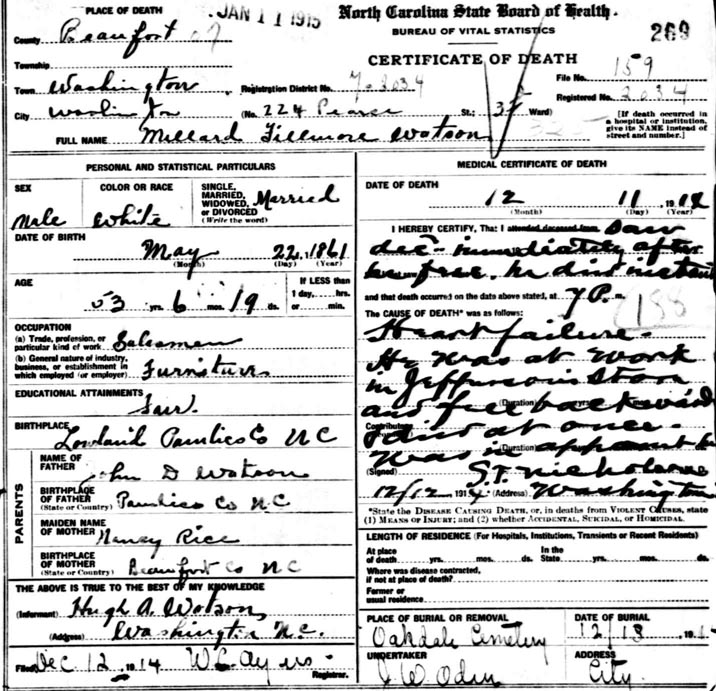 PLACE OF DEATH
JAN 11 1915
North Carolina State Board of Health.
BUREAU OF VITAL STATISTICS
269
County Beaufort
CERTIFICATE OF DEATH
Township
File No. 159
Town Washington
Registration District No. 7-2034
Registered No. 2034
City
(No. 224 Pearce St.; Ward)
[If death occurred in a hospital or institution, give its NAME instead of street and number.]
FULL NAME Millard Fillmore Watson
PERSONAL AND STATISTICAL PARTICULARS
MEDICAL CERTIFICATE OF DEATH
SEX
Male
COLOR OR RACE
White
SINGLE, MARRIED, WIDOWED, or DIVORCED
(Write the word)
Married
DATE OF DEATH
12 11 1914
(Month) (Day) (Year)
DATE OF BIRTH
May 22, 1861
(Month) (Day) (Year)
I HEREBY CERTIFY, That I attended deceased from saw
dec- immediately after
he died instant
AGE
53 yrs. 6 mos. 19 ds.
If LESS than
1 day, hrs.
or min.
and that death occurred on the date above stated, at 7 P.
The CAUSE OF DEATH* was as follows:
188
OCCUPATION
(a) Trade, profession, or particular kind of work Salesman
(b) General nature of industry, business, or establishment in which employed (or employer) Furniture
Heart failure-
He was at work
in Jefferson's Store
and fell backward
(Duration) yrs.
EDUCATIONAL ATTAINMENTS
Fair.
Contributory
& died at once-
Was in apparent
(Duration)
BIRTHPLACE
Lowland Pamlico Co NC
(Signed) S.T. Nicholson
12/12 1914 (Address) Washington
PARENTS
NAME OF FATHER
John D Watson
BIRTHPLACE OF FATHER
(State or Country) Pamlico Co NC
MAIDEN NAME OF MOTHER
Nancy Rice
BIRTHPLACE OF MOTHER
(State or Country) Beaufort Co NC
*State the DISEASE CAUSING DEATH, or, in deaths from VIOLENT CAUSES, state (1) MEANS OF INJURY; and (2) whether ACCIDENTAL, SUICIDAL, or HOMICIDAL.
LENGTH OF RESIDENCE (For Hospitals, Institutions, Transients or Recent Residents)
At place of death yrs. mos. ds. In the State yrs. mos. ds.
Where was disease contracted, if not at place of death?
Former or usual residence
THE ABOVE IS TRUE TO THE BEST OF MY KNOWLEDGE
(Informant) Hugh A. Watson,
(Address) Washington N.C.
PLACE OF BURIAL OR REMOVAL
Oakdale Cemetery
DATE OF BURIAL
12/13
Filed Dec 12 1914 W.C. Ayers Registrar.
UNDERTAKER
J. W. Oden
ADDRESS
City.